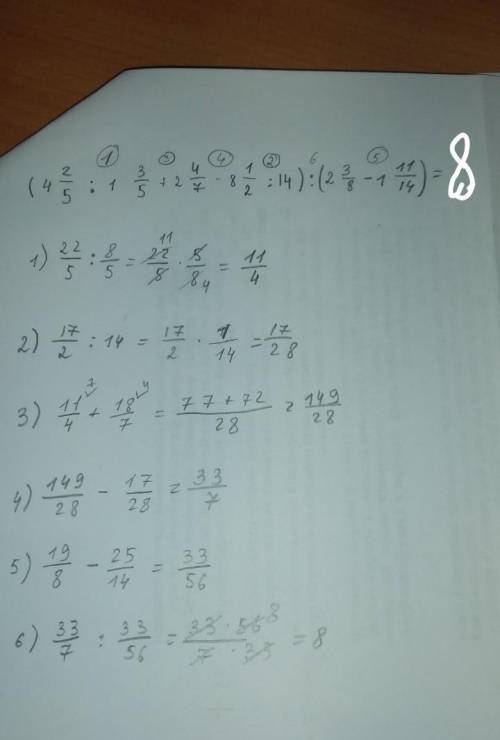 (4 2/5 : 1 3/5 + 2 4/7 - 8 1/2 : 14) : (2 3/8 - 1 11/14) = 8
1) 22/5 : 8/5 = 22/5 · 5/8 = 11/4
2) 17/2 : 14 = 17/2 · 1/14 = 17/28
3) 11/4 + 18/7 = 77+72/28 = 149/28
4) 149/28 - 17/28 = 33/7
5) 19/8 - 25/14 = 33/56
6) 33/7 : 33/56 = 33 · 56/7 · 33 = 8